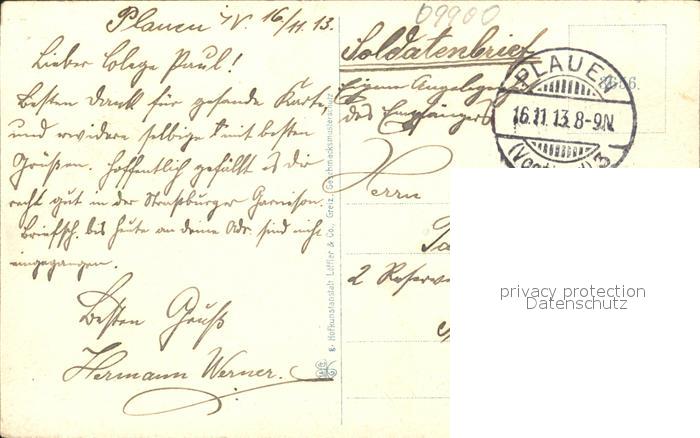 Plauen i/V. 16/11.13.
Lieber Colege Paul!
Besten Dank für gesande Karte,
und erwidere selbige mit besten
Grüßen. Hoffentlich gefällt es dir
recht gut in der Straßburger Garnison.
Briefsch. bis heute an deine Adr. sind nicht
eingegangen.
Besten Gruß
Hermann Werner.
g. Hofkunstanstalt Löffler & Co., Greiz, Geschmacksmusterschutz
09900
Soldatenbrief
Eigene Angelegen
des Empfängers
Herrn
2 Reserv
PLAUEN
16.11.13.8-9N.
(Vogtl.) 3
privacy protection
Datenschutz